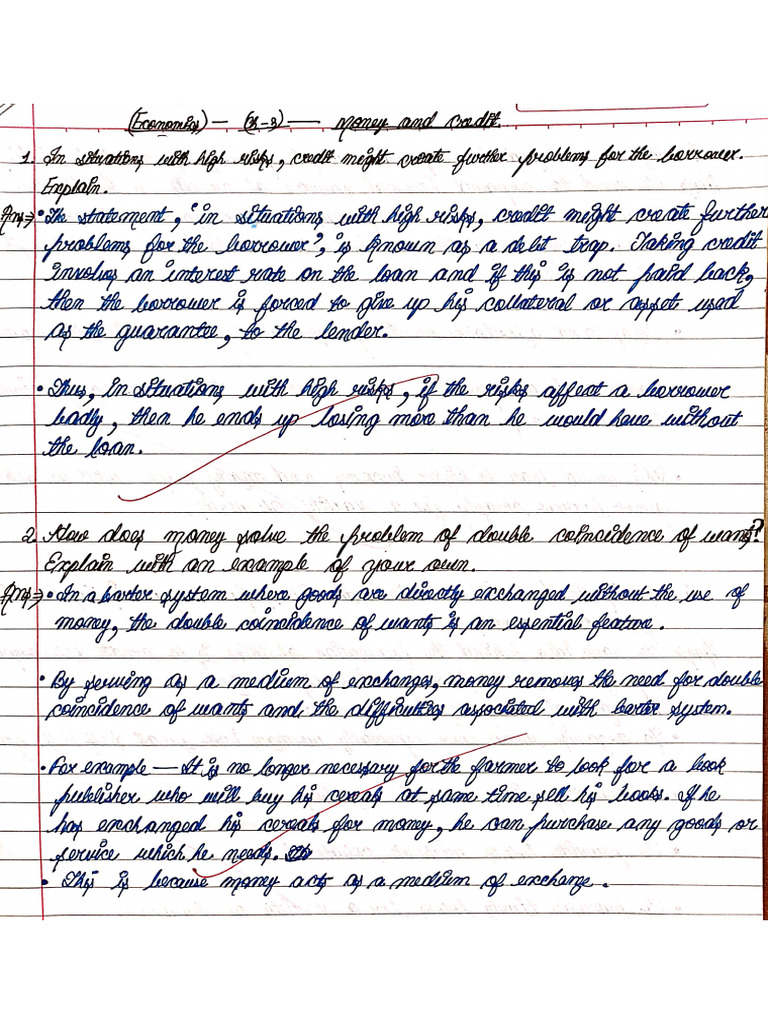 (Economics) — (2-3) — Money and Credit.
1. In situations with high risks, credit might create further problems for the borrower.
Explain.
Ans⇒ • The statement, 'in situations with high risks, credit might create further
problems for the borrower', is known as a debt trap. Taking credit
involves an interest rate on the loan and if this is not paid back,
then the borrower is forced to give up his collateral or asset used
as the guarantee, to the lender.
• Thus, in situations with high risks, if the risks affect a borrower
badly, then he ends up losing more than he would have without
the loan.
2. How does money solve the problem of double coincidence of wants?
Explain with an example of your own.
Ans⇒ • In a barter system where goods are directly exchanged without the use of
money, the double coincidence of wants is an essential feature.
• By serving as a medium of exchanges, money removes the need for double
coincidence of wants and the difficulties associated with barter system.
• For example — It is no longer necessary for the farmer to look for a book
publisher who will buy his cereals at same time sell his books. If he
has exchanged his cereals for money, he can purchase any goods or
service which he needs.
• This is because money acts as a medium of exchange.